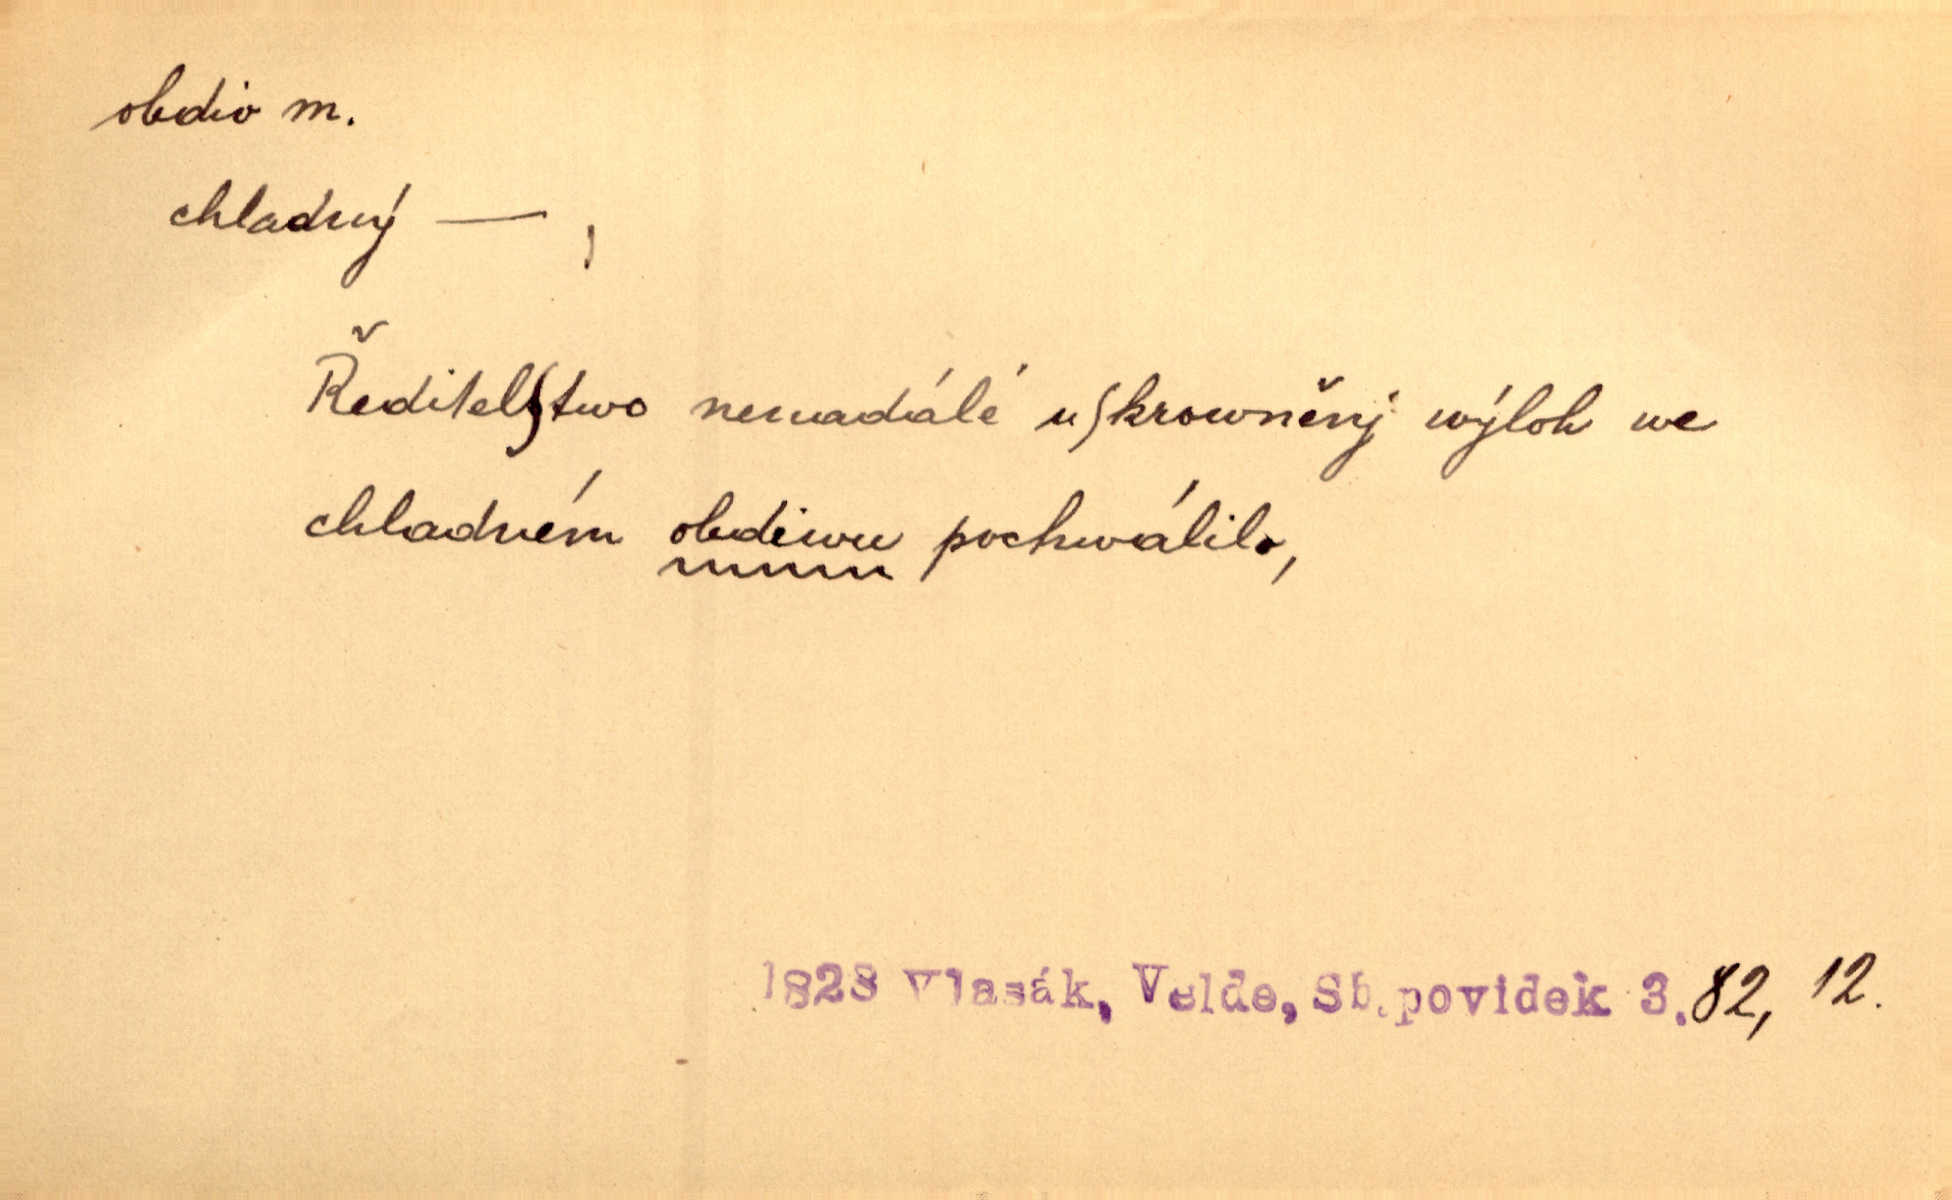 obdiv m.
chladný — ,
Ředitelſtwo nenadálé uſkrowněnj wýloh we
chladném obdiwu pochwálilo,
1828 Vlasák, Velde, Sb.povídek 3.82, 12.